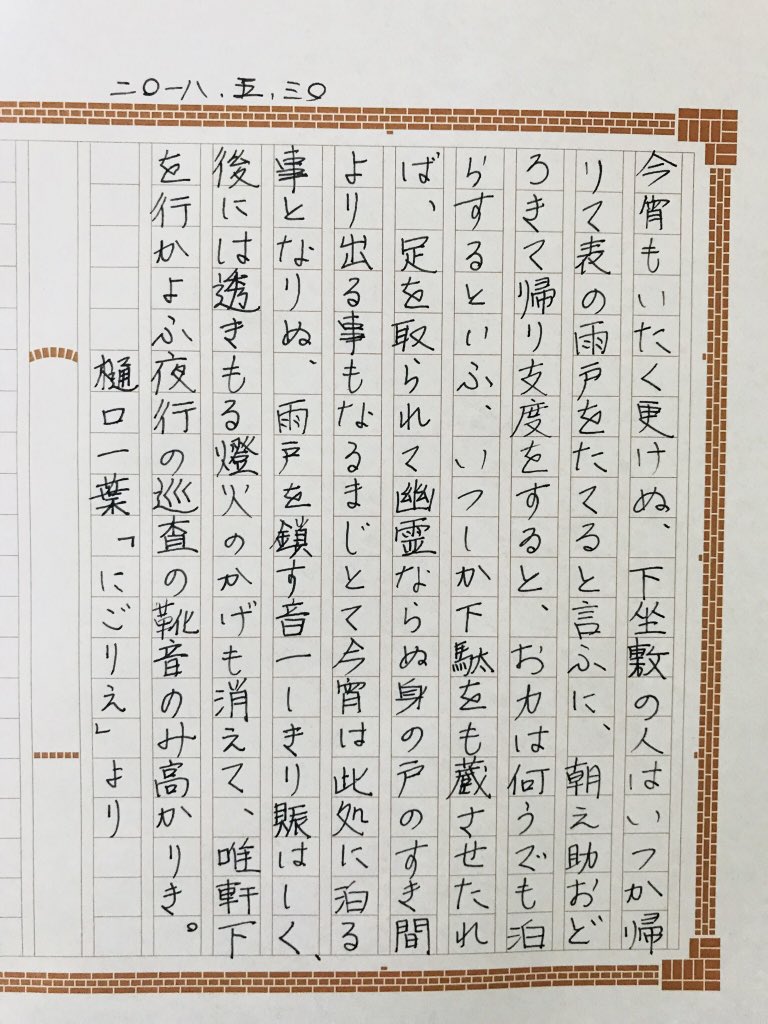 二〇一八.五.三〇
今宵もいたく更けぬ、下坐敷の人はいつか帰
りて表の雨戸をたてると言ふに、朝え助おど
ろきて帰り支度をすると、お力は何うでも泊
らするといふ、いつしか下駄をも蔵させたれ
ば、足を取られて幽霊ならぬ身の戸のすき間
より出る事もなるまじとて今宵は此処に泊る
事となりぬ、雨戸を鎖す音一しきり賑はしく、
後には透きもる燈火のかげも消えて、唯軒下
を行かよふ夜行の巡査の靴音のみ高かりき。
樋口一葉「にごりえ」より